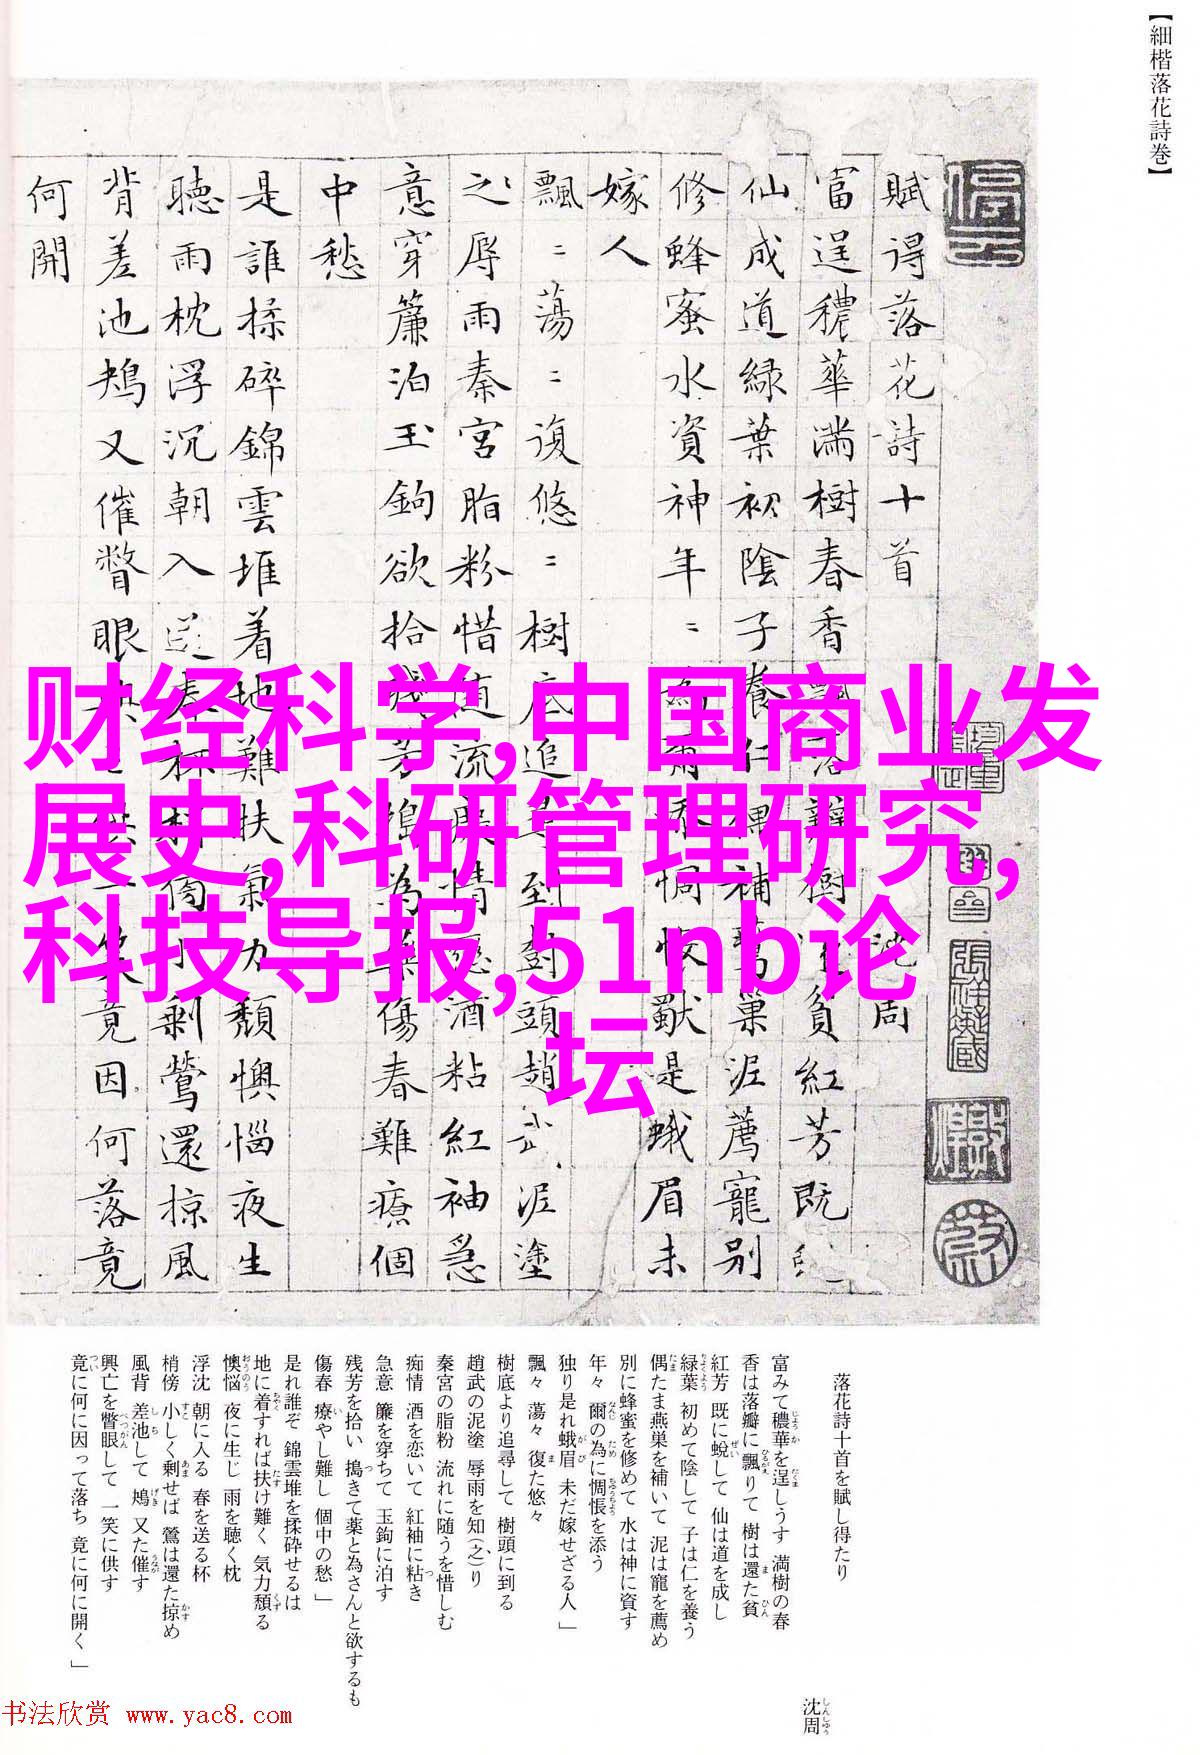 【細楷落花詩巻】
賦得落花詩十首 沈周
富逞穠華滿樹春香 落瓣樹 貧紅芳既
仙成道綠葉初陰子養仁 補 巢泥薦寵别
修蜂蜜水資神年〻 爾 惆悵獨是蛾眉未
嫁人
飄〻蕩〻復悠〻樹底追 到樹頭趙武泥塗
之辱雨秦宮脂粉惜随流 情 酒粘紅袖急
意穿簾泊玉鉤欲拾 芳 為藥傷春難療個
中愁
是誰揉碎錦雲堆着地難扶氣力頽懊惱夜生
聴雨枕浮沉朝入 春杯梢 小剰鶯還掠風
背差池鴂又催瞥眼 一笑竟因何落竟
何開
财经科学,中国商业发
展史,科研管理研究,
科技导报,51nb论
坛
落花詩十首を賦し得たり
沈周
富みて穠華を逞しうす 満樹の春
香は落瓣に飄りて 樹は還た貧
紅芳 既に蛻して 仙は道を成し
緑葉 初めて陰して 子は仁を養う
偶たま燕巣を補いて 泥は寵を薦め
別に蜂蜜を修めて 水は神に資す
年々 爾の為に惆悵を添う
独り是れ蛾眉 未だ嫁せざる人」
飄々 蕩々 復た悠々
樹底より追尋して 樹頭に到る
趙武の泥塗 辱雨を知(之)り
秦宮の脂粉 流れに随うを惜しむ
痴情 酒を恋いて 紅袖に粘き
急意 簾を穿ちて 玉鉤に泊す
残芳を拾い 搗きて薬と為さんと欲するも
傷春 療やし難し 個中の愁」
是れ誰ぞ 錦雲堆を揉砕せるは
地に着すれば扶け難く 気力頽る
懊悩 夜に生じ 雨を聴く枕
浮沈 朝に入る 春を送る杯
梢傍 小しく剰せば 鶯は還た掠め
風背 差池して 鴂 又た催す
興亡を瞥眼して 一笑に供す
竟に何に因って落ち 竟に何に開く」
书法欣赏 www.yac8.com